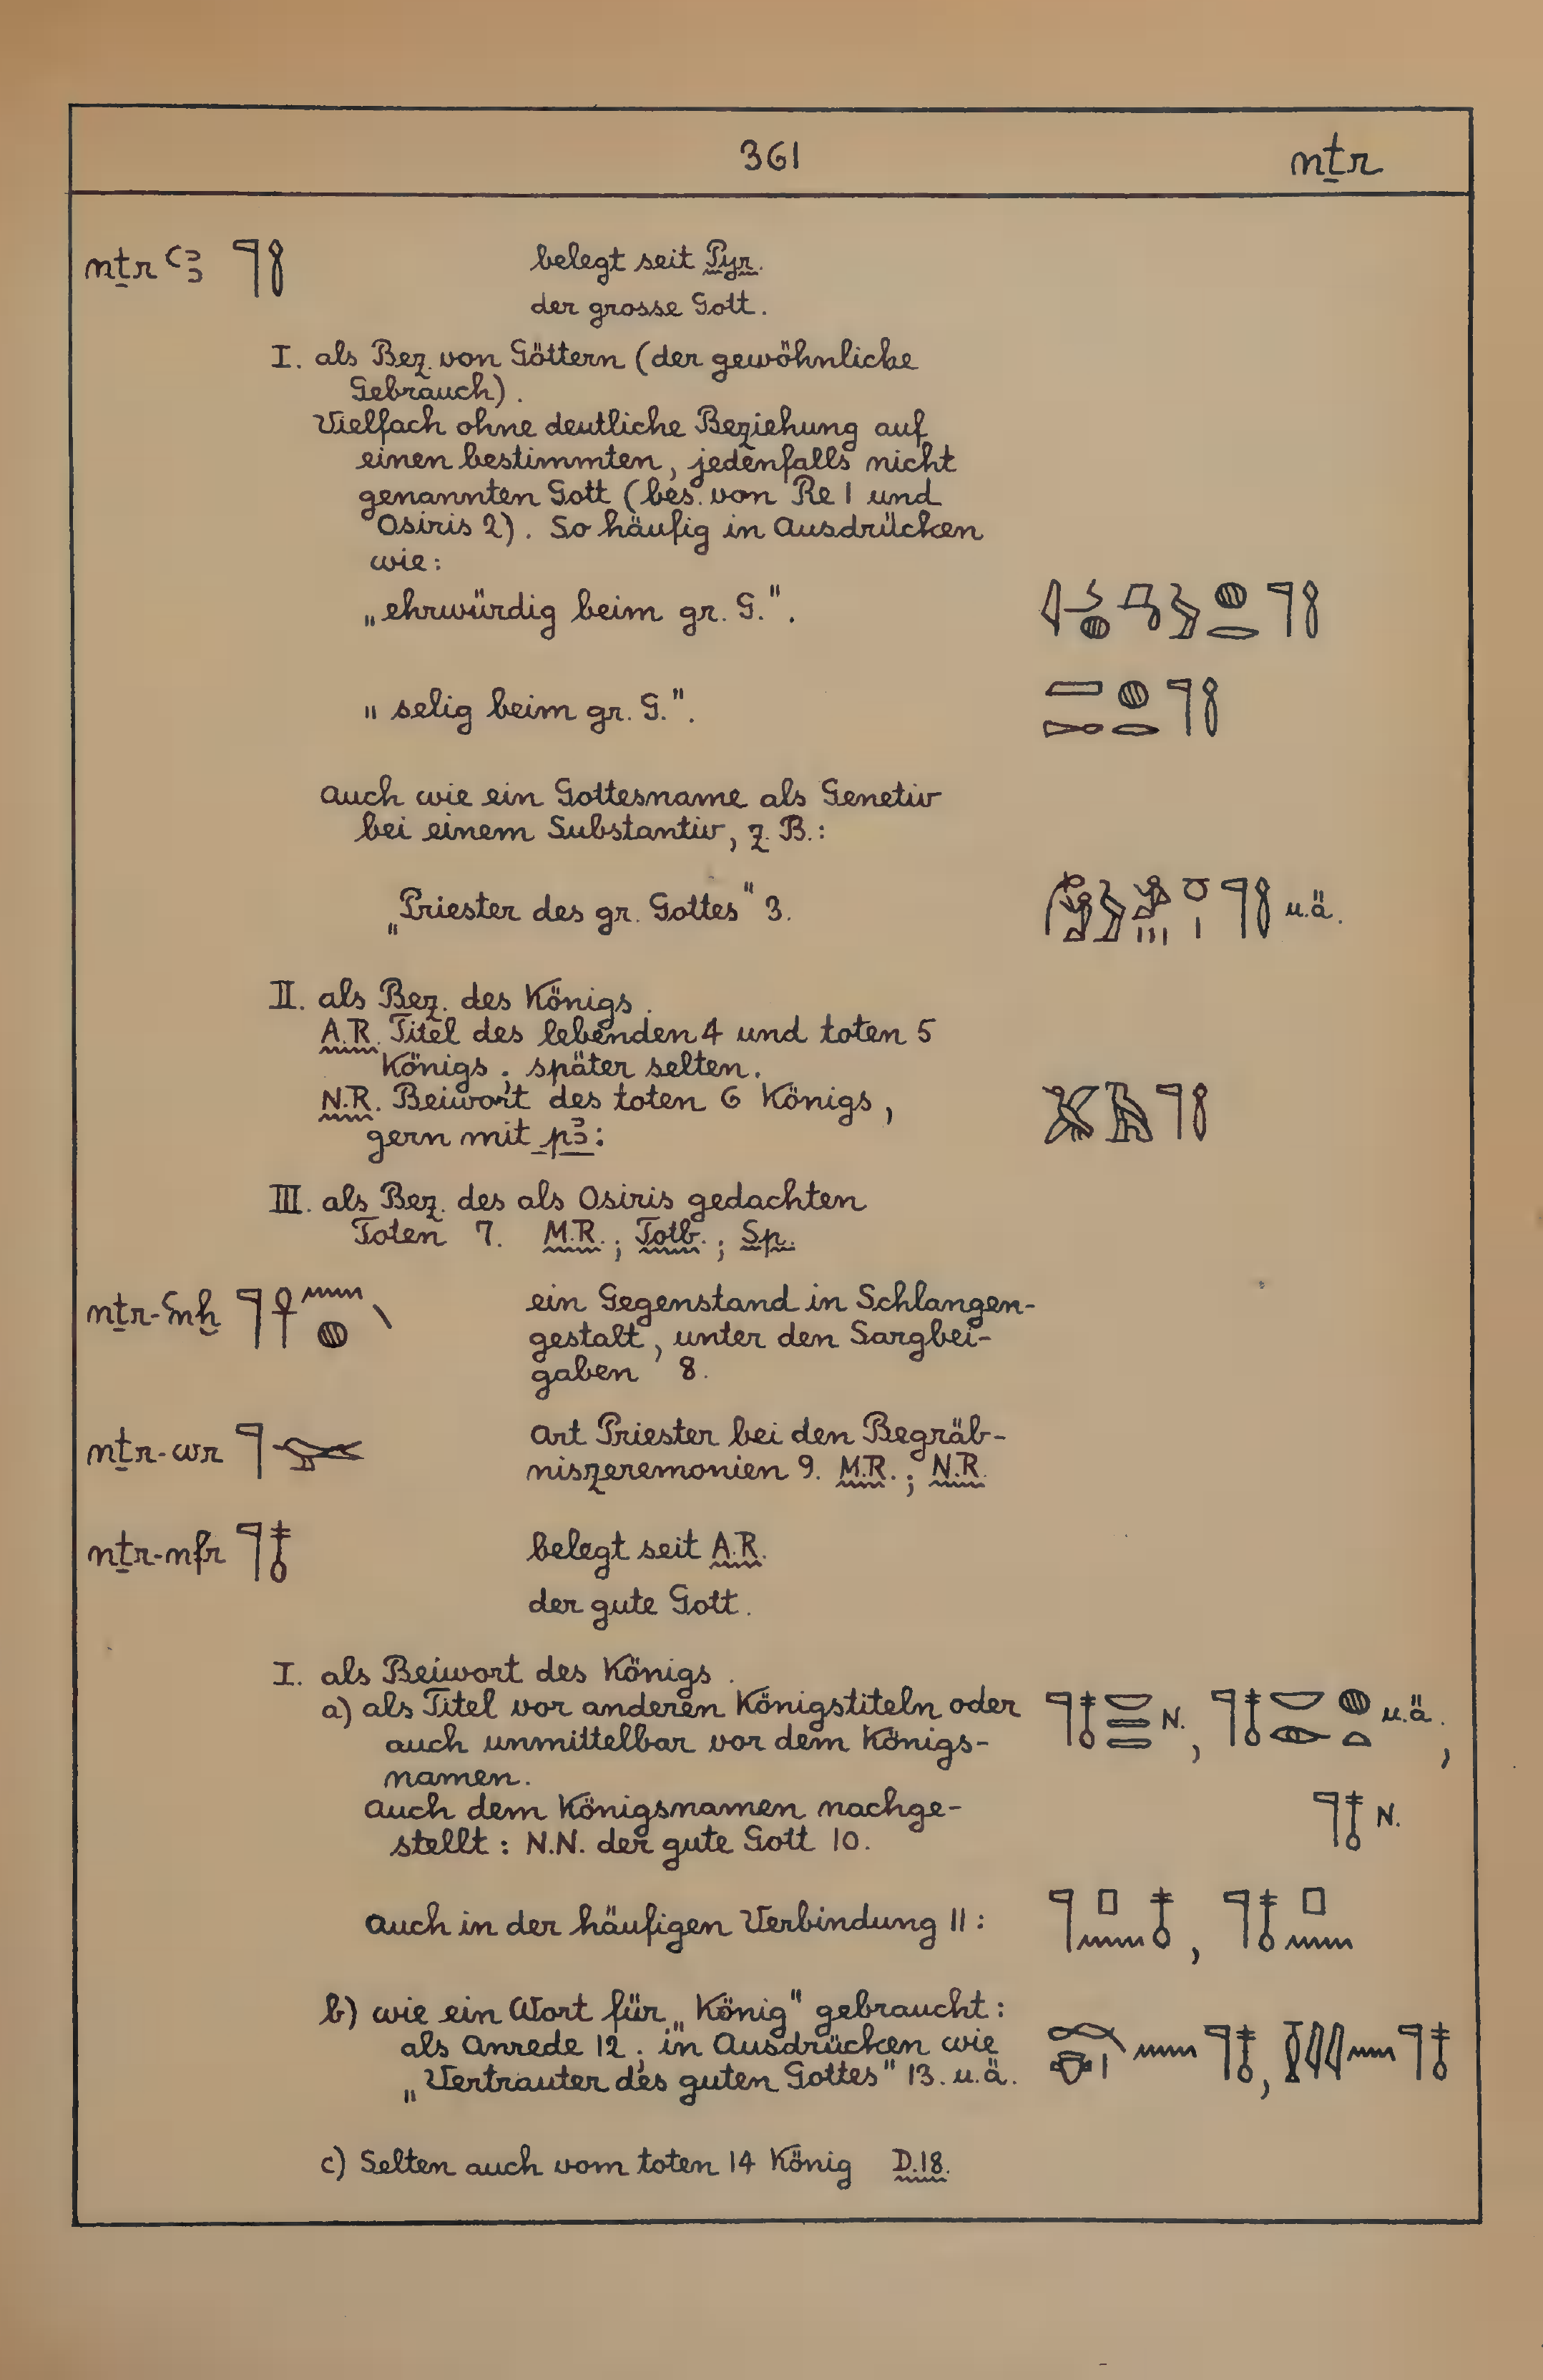 361 nṯr
nṯr ꜥꜣ 𓊹𓉼 belegt seit Pyr.
der grosse Gott.
I. als Bez. von Göttern (der gewöhnliche
Gebrauch).
Vielfach ohne deutliche Beziehung auf
einen bestimmten, jedenfalls nicht
genannten Gott (bes. von Re 1 und
Osiris 2). So häufig in Ausdrücken
wie:
„ehrwürdig beim gr. G.". 𓐍𓂋𓊹𓉼
„selig beim gr. G.". 𓐙𓊤𓐍𓂋𓊹𓉼
Auch wie ein Gottesname als Genetiv
bei einem Substantiv, z. B.:
„Priester des gr. Gottes" 3. 𓊹𓉼 u.ä.
II. als Bez. des Königs.
A.R. Titel des lebenden 4 und toten 5
Königs; später selten.
N.R. Beiwort des toten 6 Königs,
gern mit pꜣ: 𓅮𓄿𓊹𓉼
III. als Bez. des als Osiris gedachten
Toten 7. M.R.; Totb.; Sp.
nṯr-ꜥnḫ 𓊹𓋹𓈖𓐍 ein Gegenstand in Schlangen-
gestalt, unter den Sargbei-
gaben 8.
nṯr-wr 𓊹𓅨 Art Priester bei den Begräb-
niszeremonien 9. M.R.; N.R.
nṯr-nfr 𓊹𓄤 belegt seit A.R.
der gute Gott.
I. als Beiwort des Königs.
a) als Titel vor anderen Königstiteln oder 𓊹𓄤𓎟𓇿𓇿 N., 𓊹𓄤𓎟𓁹𓐍𓏏 u.ä.,
auch unmittelbar vor dem Königs-
namen.
Auch dem Königsnamen nachge- 𓊹𓄤 N.
stellt: N.N. der gute Gott 10.
Auch in der häufigen Verbindung 11: 𓊹𓊪𓈖𓄤, 𓊹𓄤𓊪𓈖
b) wie ein Wort für „König" gebraucht:
als Anrede 12; in Ausdrücken wie
„Vertrauter des guten Gottes" 13. u.ä.
c) Selten auch vom toten 14 König D.18.